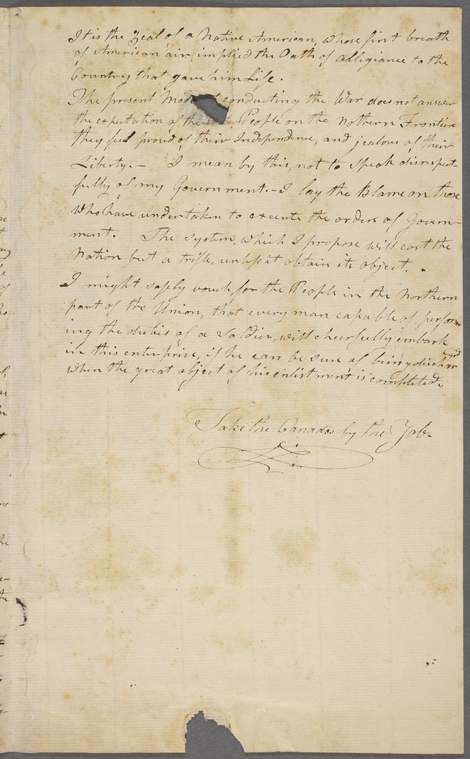 It is the Zeal of a Native American, whose first breath
of American air implied the Oath of Allegiance to the
Country that gave him Life.
The present Mode of conducting the War does not answer
the expectation of the People on the Nothern Frontier
they feel proud of their Independence, and jealous of their
Liberty.— I mean by this, not to speak disrespect-
fully of my Government.—I lay the Blame on those
who have undertaken to execute the orders of Govern-
ment. The System, which I propose will cost the
Nation but a trifle, unless it obtain its object.
I might safely vouch for the People in the Northern
part of the Union, that every man capable of perform-
ing the duties of a Soldier, will cheerfully embark
in this enterprise, if he can be sure of being discharged
when the great object of his enlistment is completed.
Take the Canadas by the Job.